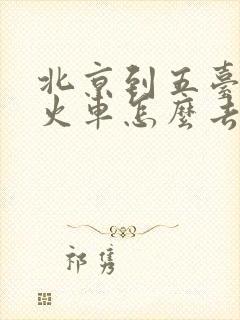 北京到五臺
火車怎麼去
祁隽